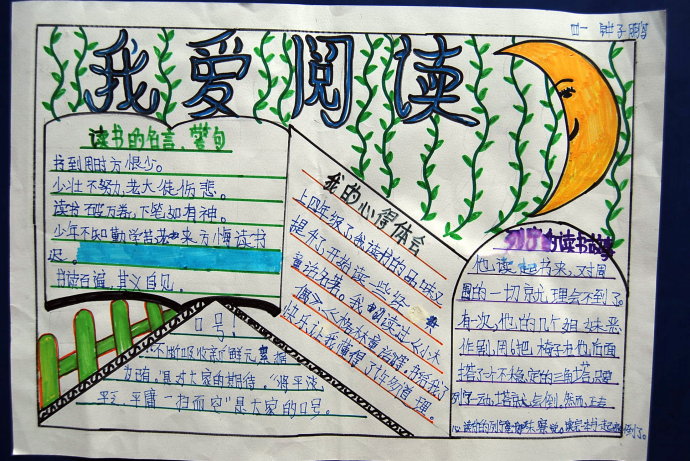 我爱阅读
读书的名言、警句
书到用时方恨少。
少壮不努力,老大徒伤悲。
读书破万卷,下笔如有神。
少年不知勤学苦 来方悔读书
迟。
书读百遍,其义自见。
我的心得体会
上四年级了我读书的品味又
提升了,开始读一些经典
童话故事。我 读过《小木
偶》、《格林童话》等,书给我
快乐让我懂得了许多道理。
口号!
不断吸收新鲜元素
为首,"是对大家的期待,"将平淡
平庸一扫而空"是大家的口号。
列宁的读书故事
他读起书来,对周
围的一切就理会不到了。
有一次,他的几个姐妹恶
作剧,用6把椅子在他后面
搭了一个不稳定的三角塔,只要
列宁一动,塔就会倒。然而,正在
心读书的列宁 倒了。